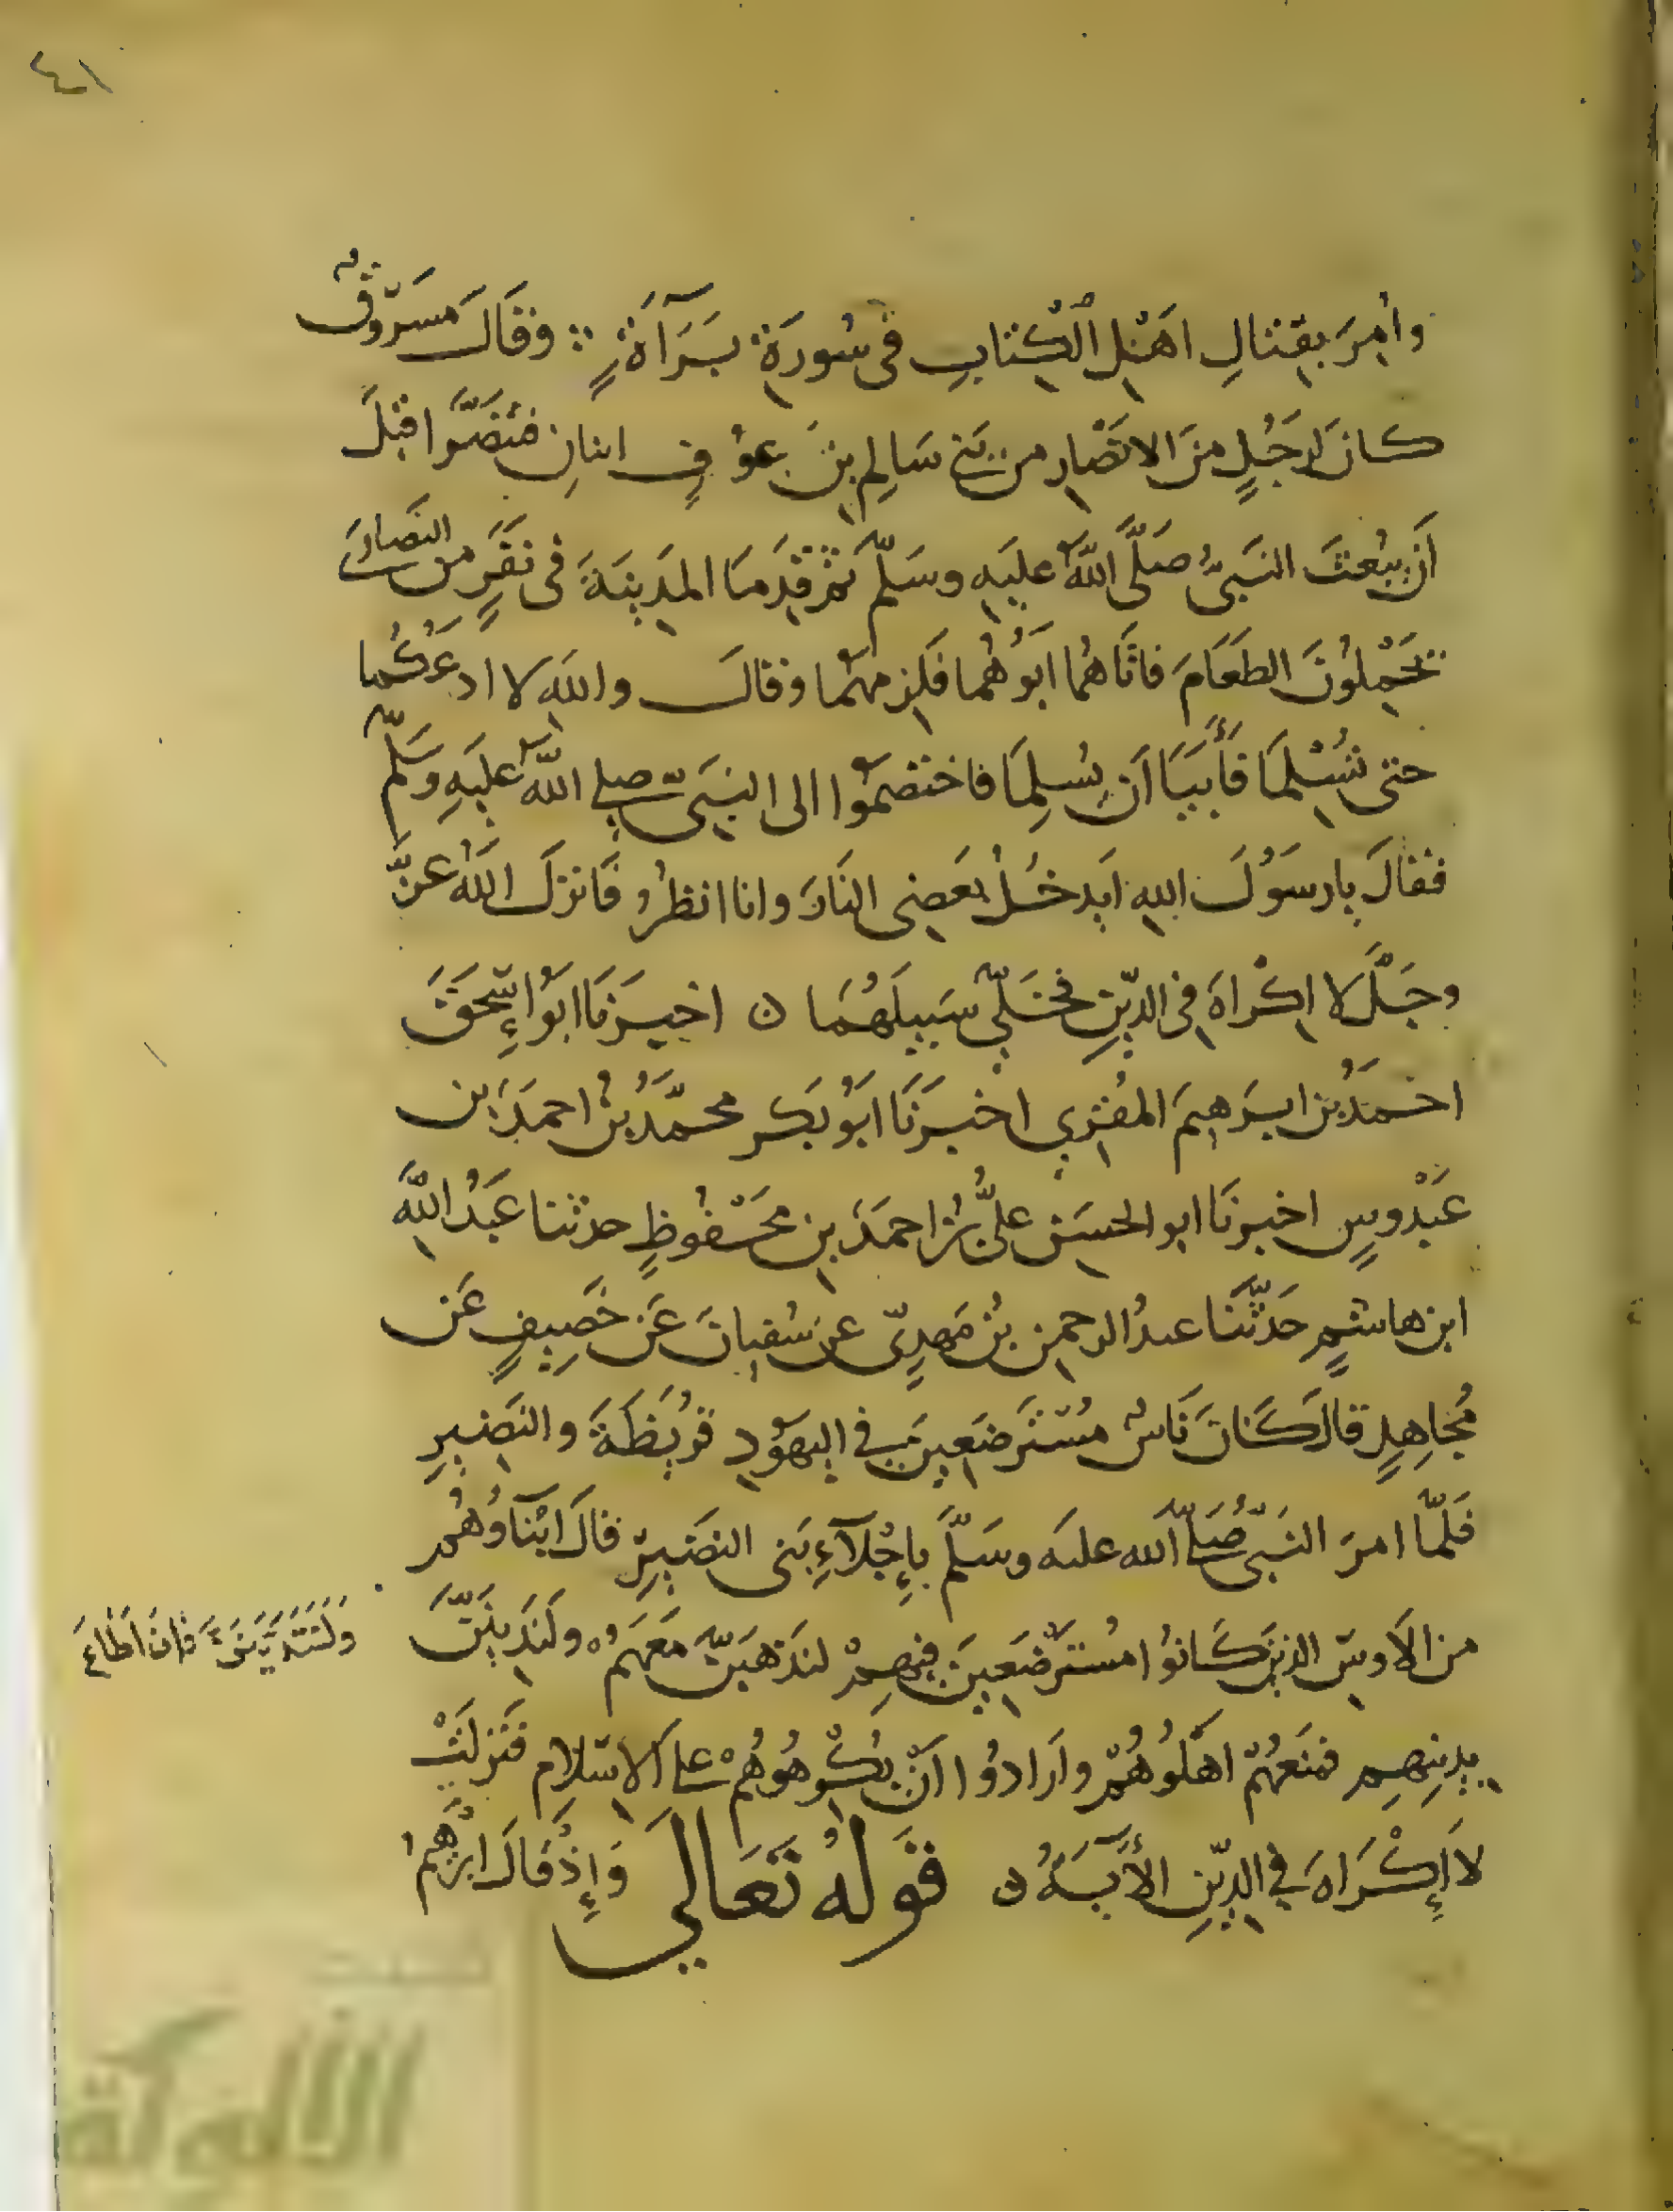 ٤١
وأُمِرَ بقتالِ اهْلِ الكِتابِ فى سُورَةِ بَرَآةٍ وقَالَ مسَرْوقٌ
كانَ لرَجُلٍ منَ الانصَارِ من بَنى سَالِمِ بنَ عوْفٍ ابنانِ فتنَصَّرا قبْلَ
اَن يُبْعثَ النَبىُّ صَلَّى اللَّهُ عليَهِ وسَلّم ثم قَدِمَا المدَينَةَ فى نفَرٍ من النصَارَى
يَحْمِلوُنَ الطعَامَ فاتَاهُما ابوَهُما فلَزِمهمُا وقالَ واللَهِ لا ادعَكُما
حتى تُسْلِمَا فأَبيَا اَن يُسلِمَا فاختصَموُا الى النبَىّ صلى اللَّهُ عليَهِ وسَلّم
فقالَ يا رسوَلَ اللهِ ايَدخُلُ بعَضِى النَارَ وانا انظرُ فَانزلَ اللَهُ عزَّ
وجَلَّ لا اِكْراهَ فِى الدّينِ فخلَّى سَبيلَهُمَا ٥ اخبرَنَا ابوُ اسِحَقَ
احمَدُ بن ابرَهِيمَ المقُرِي اخبَرنَا ابوُ بَكرِ محمَّدُ بنُ احمدَ بن
عَبْدوسٍ اخبرنَا ابو الحسَنِ علىُّ بنُ احمدَ بنِ مَحْفُوظٍ حدثنا عَبدُ اللَّهِ
ابن هاشمٍ حَدَّثنَا عبدُ الرحمنِ بنُ مَهدِىّ عن سُفيانَ عَن خَصِيفٍ عَن
مُجاهِدٍ قالَ كَانَ نَاسٌ مُسْترَضَعِينَ فى اليهوُدِ قرُيظَةَ والنَضِيرِ
فَلمّا امرَ النبَىُّ صَلىّ اللَه عليه وسَلَّم بإِجْلَآءِ بَنى النضَيرِ قالَ ابْنآؤُهُم
من الاَوسِ الذينَ كَانوُا مُستَرضَعِينَ فيهِمْ لنَذهَبَنّ معَهَمُ ولَندَينَنّ
وَلَنَتَدَيَّنَنّ
بدِينِهِم فمنَعهُمْ اهْلُوهُمْ وارَادوُا اَنْ يُكْرِهوُهُمْ علَى الاسْلامِ فنَزَلَتْ
لا إِكْرَاهَ فِى الدّينِ الأَيَهُ ٥ قَولُهُ تَعَالَى وَإِذْ قَالَ ابْرَهِيمُ
الألوكة